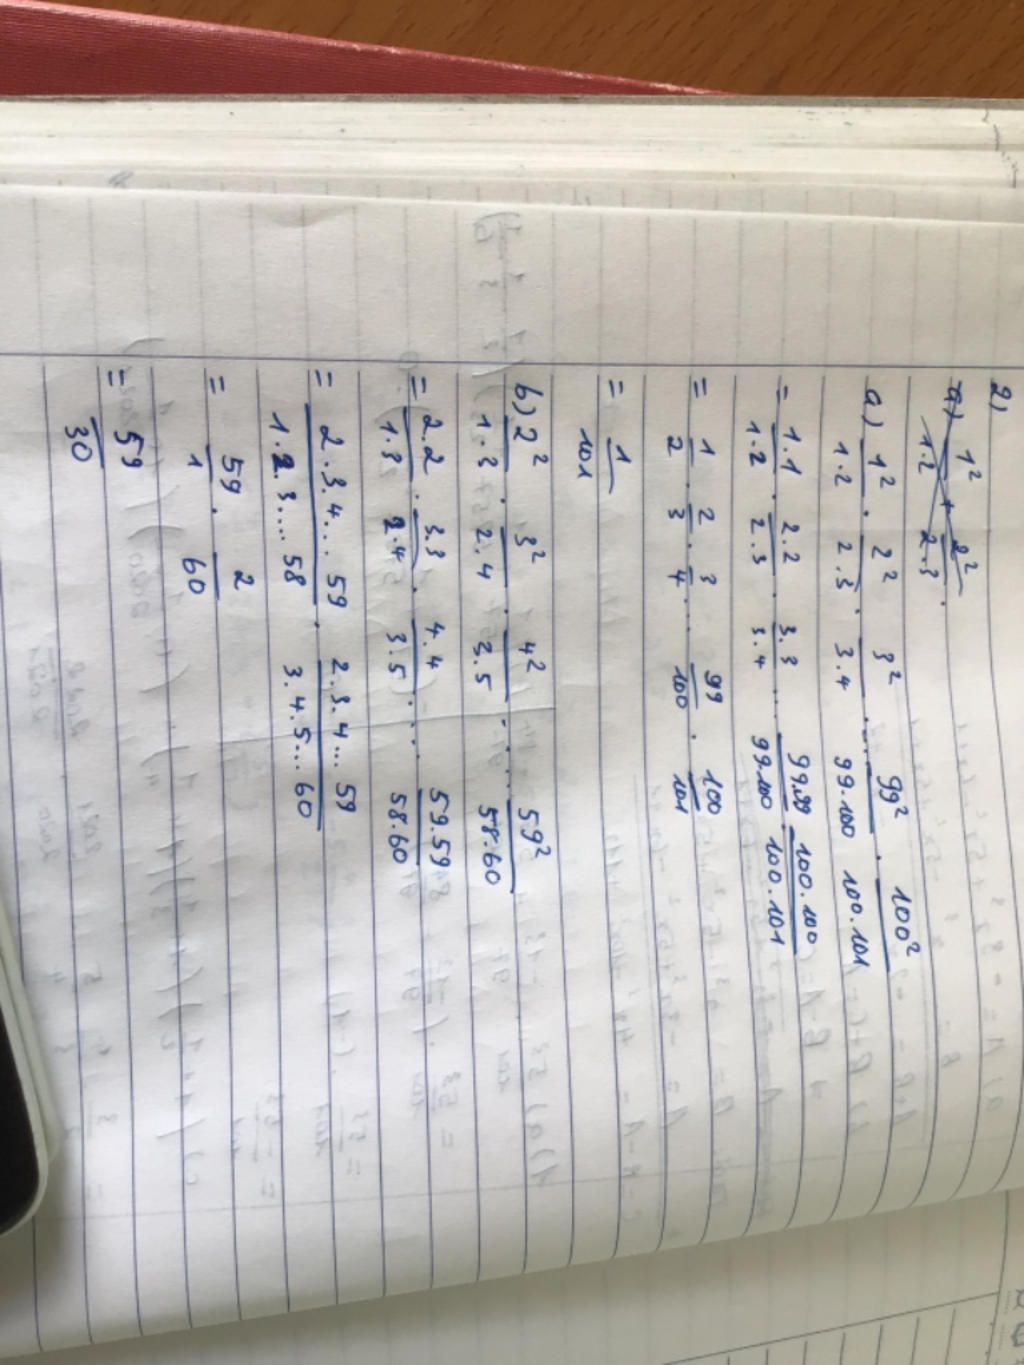 2)
a) 1²/1.2 + 2²/2.3 .
a) 1²/1.2 . 2²/2.3 . 3²/3.4 ..... 99²/99.100 . 100²/100.101
= 1.1/1.2 . 2.2/2.3 . 3.3/3.4 ... 99.99/99.100 100.100/100.101
= 1/2 . 2/3 . 3/4 .... 99/100 . 100/101
= 1/101
b) 2²/1.3 . 3²/2.4 . 4²/3.5 ..... 59²/58.60
= 2.2/1.3 . 3.3/2.4 . 4.4/3.5 .... 59.59/58.60
= 2.3.4...59/1.2.3....58 . 2.3.4...59/3.4.5...60
= 59/1 . 2/60
= 59/30